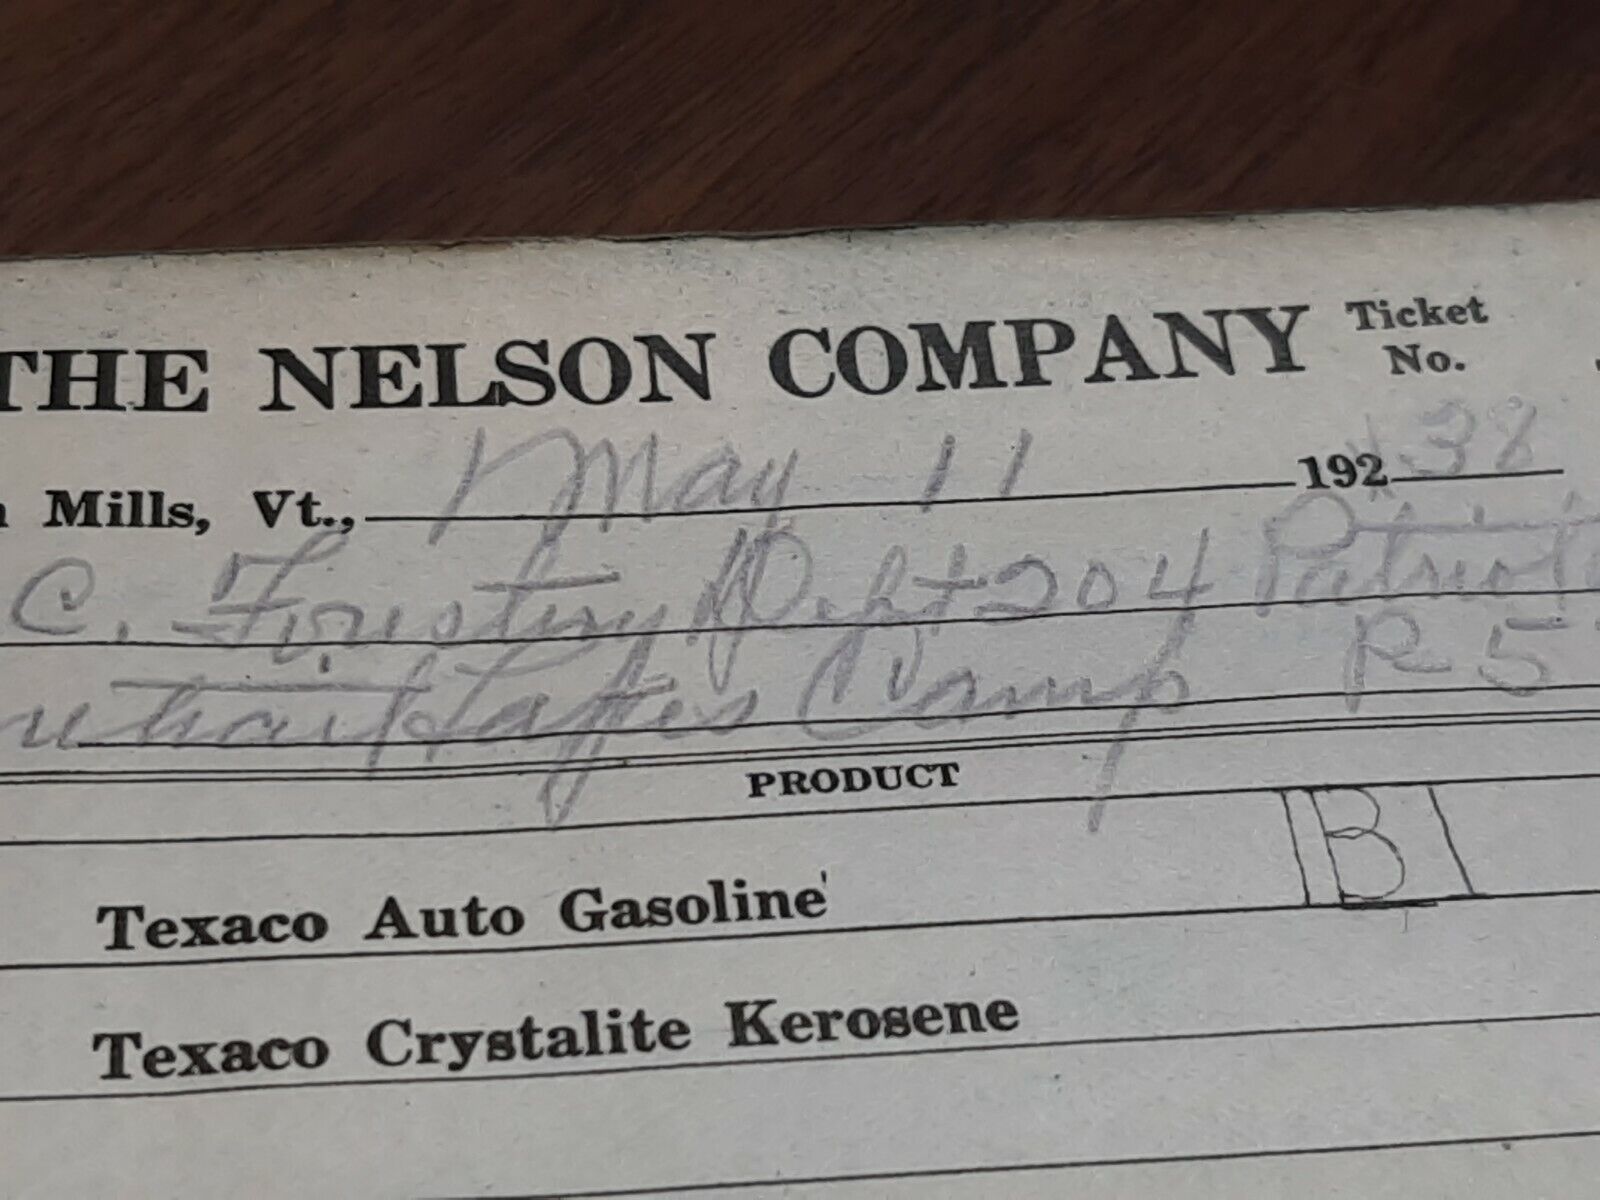 THE NELSON COMPANY Ticket No.
Mills, Vt., May 11 192 38
C. Forestry Dept 204
Camp R 5
PRODUCT
Texaco Auto Gasoline
B
Texaco Crystalite Kerosene